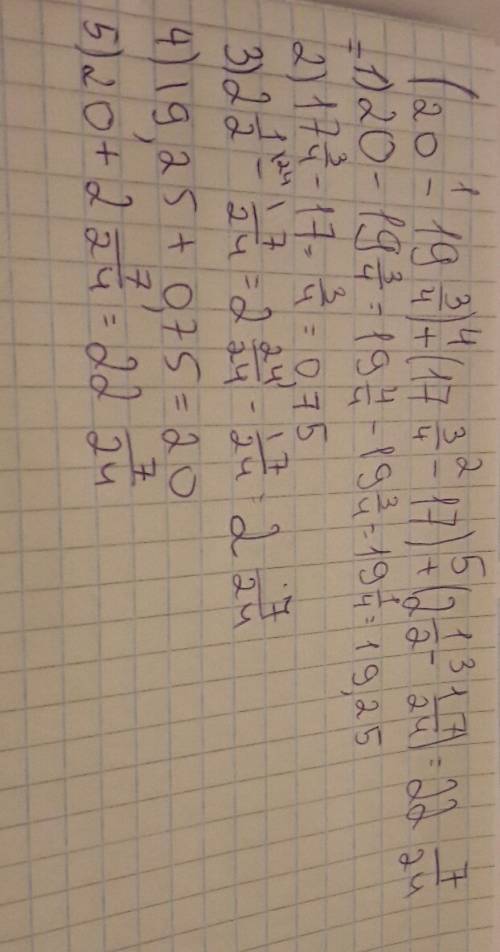 (20 - 19 3/4) + (17 3/4 - 17) + (2 1/2 - 17/24) = 22 7/24
= 1) 20 - 19 3/4 = 19 4/4 - 19 3/4 = 19 1/4 = 19,25
2) 17 3/4 - 17 = 3/4 = 0,75
3) 2 1/2 - 17/24 = 2 24/24 - 17/24 = 2 7/24
4) 19,25 + 0,75 = 20
5) 20 + 2 7/24 = 22 7/24